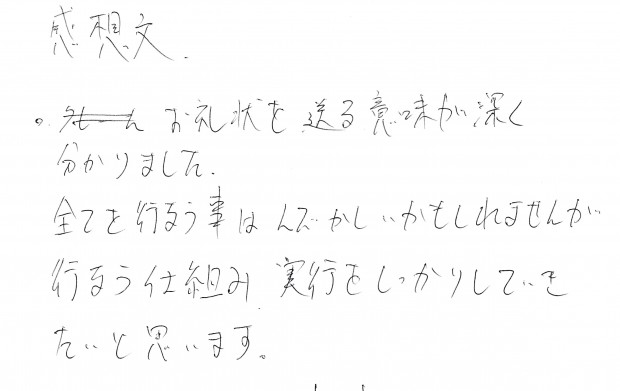 感想文.
。お礼状を送る意味が深く
分かりました.
全てを行なう事はムズかしいかもしれませんが
行なう仕組み、実行をしっかりしていき
たいと思います。